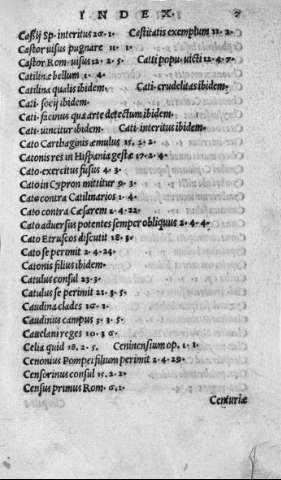 INDEX.
Cassij Sp. interitus 26. 1. Castitatis exemplum 11. 2.
Castor uisus pugnare 11. 1.
Castor Rom. uisus 12. 2. 5. Catti popu. uicti 12. 4. 7.
Catilinæ bellum 1. 4.
Catilina qualis ibidem. Cati. crudelitas ibidem.
Cati. socij ibidem.
Cati. facinus qua arte detectum ibidem.
Cati. uincitur ibidem. Cati. interitus ibidem.
Cato Carthaginis æmulus 15. 2. 2.
Catonis res in Hispania gestæ 17. 2. 4.
Cato exercitus fusus 4. 3.
Cato in Cypron mittitur 9. 3.
Cato contra Catilinarios 1. 4.
Cato contra Cæsarem 2. 4. 22.
Cato aduersus potentes semper obliquus 2. 4. 4.
Cato Etruscos discutit 18. 3.
Cato se perimit 2. 4. 24.
Catonis filius ibidem.
Catulus consul 23. 3.
Catulus se perimit 21. 3. 5.
Caudina clades 16. 1.
Caudinus campus 3. 3. 5.
Cauelani reges 10. 3 6.
Celia quid 18. 2. 5. Ceninensium op. 1. 1.
Cenonius Pompei filium perimit 2. 4. 29.
Censorinus consul 15. 2. 2.
Census primus Rom. 6. 1.
Centuriæ